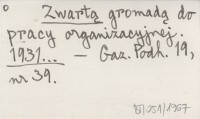 Zwartą gromadą do
pracy organizacyjnej.
1931... — Gaz. Podh. 19,
nr 39.